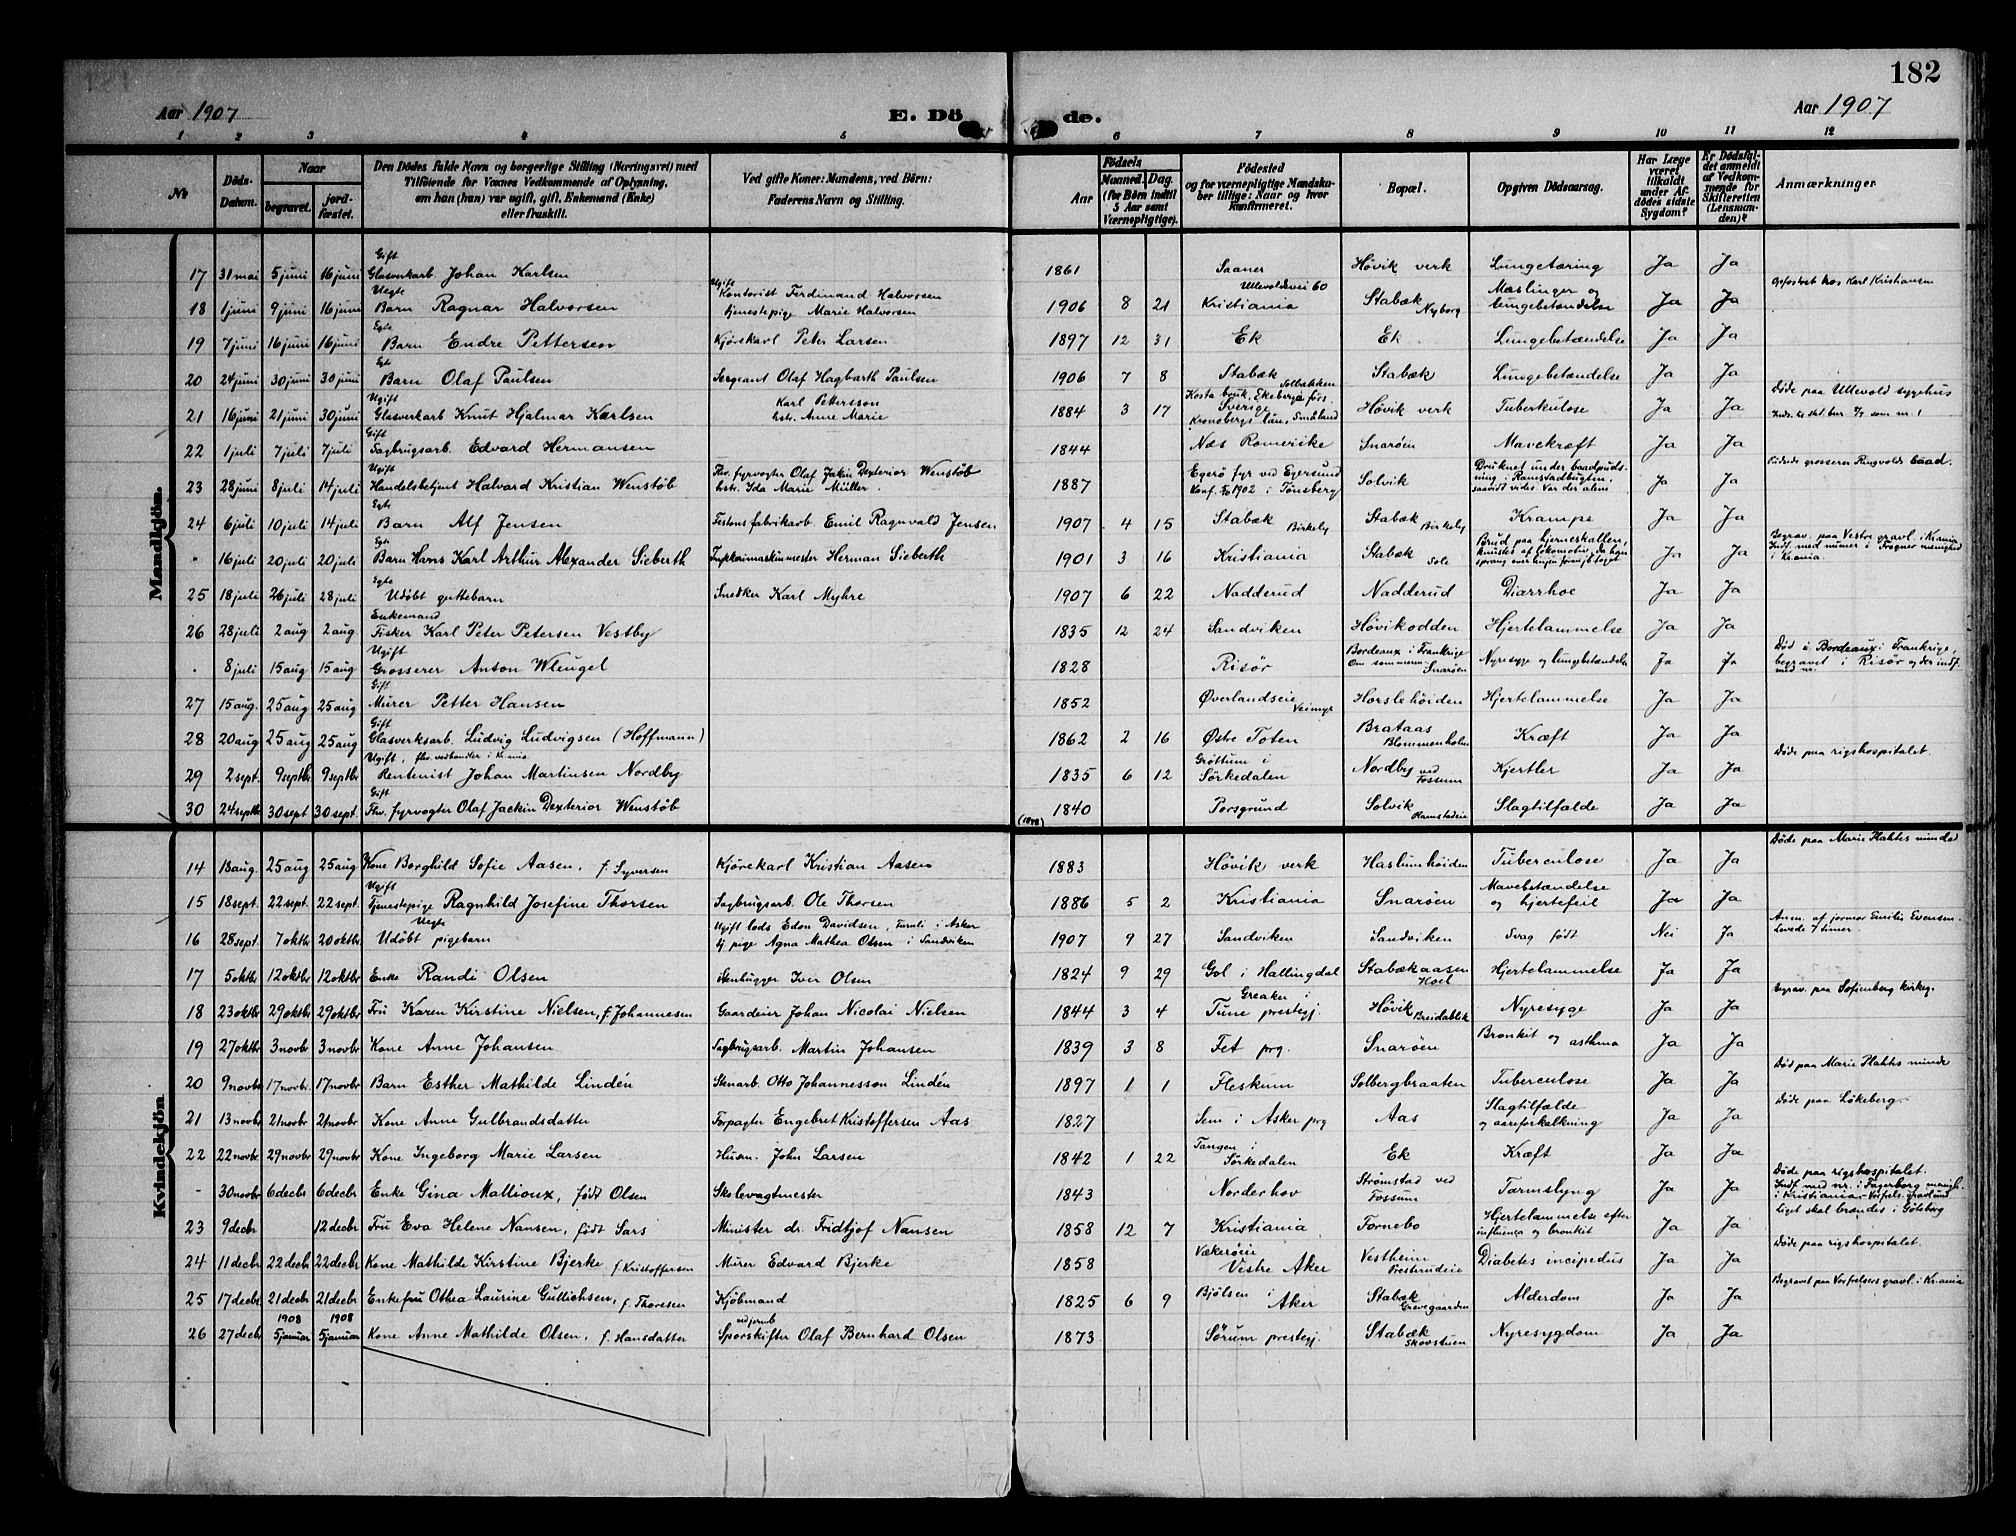 182
Aar 1907 E. Dö de. Aar 1907
1 2 3 4 5 6 7 8 9 10 11 12
No
Döds-Datum.
Naar
begravet.
jord-fæstet.
Den Dödes fulde Navn og borgerlige Stilling (Næringsvei) med
Tilföiende for Voxnes Vedkommende af Oplysning,
om han (hun) var ugift, gift, Enkemand (Enke)
eller fraskilt.
Ved gifte Koner: Mandens, ved Börn:
Faderens Navn og Stilling.
Födsels
Aar
Maaned. Dag.
(for Börn indtil
5 Aar samt
Værnepligtige).
Födested
og for værnepligtige Mandska-
ber tillige: Naar og hvor
konfirmeret.
Bopæl.
Opgiven Dödsaarsag.
Har Læge
været
tilkaldt
under Af-
dödes sidste
Sygdom?
Er Dödsfal-
det anmeldt
af Vedkom-
mende for
Skifteretten
(Lensman-
den)?
Anmærkninger
Mandkjön.
17 31 mai 5 juni 16 juni Gift Glasverkarb. Johan Karlsen 1861 Saaner Høvik verk Lungetæring Ja Ja
18 1 juni 9 juni 16 juni Uegte Barn Ragnar Halvorsen Ugift Kontorist Ferdinand Halvorsen tjenestepige Marie Halvorsen 1906 8 21 Ullevoldsvei 60 Kristiania Stabæk Nyborg Mæslinger og lungebetændelse Ja Ja Opfostret hos Karl Kristiansen
19 7 juni 16 juni 16 juni Egte Barn Endre Pettersen Kjørekarl Peter Larsen 1897 12 31 Ek Ek. Lungebetændelse Ja Ja
20 24 juni 30 juni 30 juni Egte Barn Olaf Paulsen Sergeant Olaf Hagbarth Paulsen 1906 7 8 Stabæk Solbakken Stabæk Lungebetændelse Ja Ja
21 16 juni 21 juni 30 juni Ugift Glasverkarb Knut Hjalmar Karlsen Karl Pettersson hst. Anne Marie 1884 3 17 Kosta bruk, Ekeberga förs. Sverige Kronobergs län, Småland Høvik verk Tuberkulose Ja Ja Døde paa Ullevold sygehus
22 1 juli 7 juli 7 juli Gift Sagbrugsarb. Edvard Hermansen 1844 Næs Romerike Snarøen Mavekræft Ja Ja
23 28 juni 8 juli 14 juli Ugift Handelsbetjent Halvard Kristian Wenstøb Fhv. fyrvogter Olaf Jakin Dexterior Wenstøb hst. Ida Marie Müller. 1887 Egerö fyr ved Egersund Konf. 1902 i Tønsberg Solvik Druknet under baadpuds-ning i Ramstadbugten, saavidt vides. Var der alene Ja Ja Pudsede grosserer Ringvolds baad.
24 6 juli 10 juli 14 juli Egte Barn Alf Jensen Festonsfabrikarb. Emil Ragnvald Jensen 1907 4 15 Stabæk Birkeby Stabæk Birkeby Krampe Ja Ja
" 16 juli 20 juli 20 juli Egte Barn Hans Karl Arthur Alexander Sieberth Trykkeimaskinmester Herman Sieberth 1901 3 16 Kristiania Stabæk Sole Brud paa hjerneskallen, knuset af lokomotiv, da han sprang over linjen foran toget Ja Ja Begrav. paa Vestre gravl. i Kr.ania Indf. med numer i Frogner menighed i Kr.ania.
25 18 juli 26 juli 28 juli Egte Udøbt guttebarn Snedker Karl Myhre 1907 6 22 Nadderud Nadderud Diarrhoe Ja Ja
26 28 juli 2 aug 2 aug Enkemand Fisker Karl Peter Petersen Vestby 1835 12 24 Sandviken Høvikodden Hjertelammelse Ja Ja
. 8 juli 15 aug 15 aug Ugift Grosserer Anton Wleugel 1828 Risør Bordeaux i Frankrige Om sommeren Snarøen Nyresyge og lungebetændelse Ja Ja Død i Bordeaux i Frankrige, begravet i Risør og der indf. med nr.
27 15 aug. 25 aug 25 aug Gift Murer Petter Hansen 1852 Øverlandseie Veimyr Horslehøiden Hjertelammelse Ja Ja
28 20 aug 25 aug 25 aug Gift Glasverksarb. Ludvig Ludvigsen (Hoffmann) 1862 2 16 Østre Toten Brataas Blommenholm Kræft Ja Ja
29 2 sept. 9 septbr 9 septbr Ugift, fhv. vedhandler i Kr.ania Rentenist Johan Martinsen Nordby 1835 6 12 Grøttum i Sörkedalen Nordby ved Fossum Kjertler Ja Ja Døde paa rigshospitalet.
30 24 septbr 30 sept 30 sept. Gift Fhv. fyrvogter Olaf Jackin Dexterior Wenstøb 1840 Porsgrund Solvik Ramstadeie Slagtilfælde Ja Ja
Kvindekjön.
14 18 aug. 25 aug 25 aug Kone Borghild Sofie Aasen, f. Syversen Kjørekarl Kristian Aasen 1883 Høvik verk Haslumhøiden Tuberculose Ja Ja Døde paa Marie Plahtes minde
15 18 sept. 22 sept. 22 sept. Ugift Tjenestepige Ragnhild Josefine Thorsen Sagbrugsarb. Ole Thorsen 1886 5 2 Kristiania Snarøen Mavebetændelse og hjertefeil Ja Ja
16 28 sept. 7 oktbr 20 oktbr Uegte Udøbt pigebarn Ugift lods Edon Davidsen, i Asker og pige Agna Mathea Olsen i Sandviken 1907 9 27 Sandviken Sandviken Svag født Nei Ja Anm. af jormor Emilie Evensen. Levede 7 timer.
17 5 oktbr 12 oktbr 12 oktbr Enke Randi Olsen Stenhugger Iver Olsen 1824 9 29 Gol i Hallingdal Stabækaasen Hoel Hjertelammelse Ja Ja
18 23 oktbr 29 oktbr 29 oktbr Fru Karen Kirstine Nielsen, f. Johannesen Gaardeier Johan Nicolai Nielsen 1844 3 4 Greaker i Tune prestegj. Høvik Breidablik Nyresyge Ja Ja Begrav. paa Sofienberg kirkeg.
19 27 oktbr 3 novbr 3 novbr Kone Anne Johansen Sagbrugsarb. Martin Johansen 1839 3 8 Fet prg. Snarøen Bronkit og asthma Ja Ja
20 9 novbr 17 novbr. 17 novbr Barn Esther Mathilde Lindén Stenarb. Otto Johannesson Lindén 1897 1 1 Fleskum Solbergbraaten Tuberculose Ja Ja Død paa Marie Plahtes minde
21 13 novbr 21 novbr 21 novbr Kone Anne Gulbrandsdatter Forpagter Engebret Kristoffersen Aas 1827 Sem i Asker prg Aas Slagtilfælde og aareforkalkning Ja Ja Døde paa Løkeberg.
22 22 novbr. 29 novbr 29 novbr Kone Ingeborg Marie Larsen Husm. John Larsen 1842 1 22 Tangen i Sørkedalen Ek Kræft Ja Ja
- 30 novbr 6 decbr 6 decbr Enke Gina Mallioux, født Olsen Skolevagtmester 1843 Norderhov Strømstad ved Fossum Tarmslyng Ja Ja Døde paa rigshospitalet. Indf. med nr. i Fagerborg menigh. i Kristiania - Vorfrels. gravlund
23 9 decbr 12 decbr Fru Eva Helene Nansen, født Sars Minister dr. Fridtjof Nansen 1858 12 7 Kristiania Fornebo Hjertelammelse efter influenza og bronkit Ja Ja Liget skal brændes i Göteborg
24 11 decbr 22 decbr 22 decbr Kone Mathilde Kirstine Bjerke f. Kristoffersen Murer Edvard Bjerke 1858 Vækerøeie Vestre Aker Vestheim Presterudeie Diabetes incipedus Ja Ja Døde paa rigshospitalet.
25 17 decbr 21 decbr 21 decbr Enkefru Othea Laurine Gullichsen, f. Thoresen Kjøbmand 1825 6 9 Bjølsen i Aker Stabæk Grevegaarden Alderdom Ja Ja Begravet paa Vorfrelsers gravl. i Kr.ania
26 27 decbr 1908 5 januar 1908 5 januar Kone Anne Mathilde Olsen, f. Hansdatter Sporskifter ved jernb Olaf Bernhard Olsen 1873 Sørum prestegj. Stabæk Skovstuen Nyresygdom Ja Ja